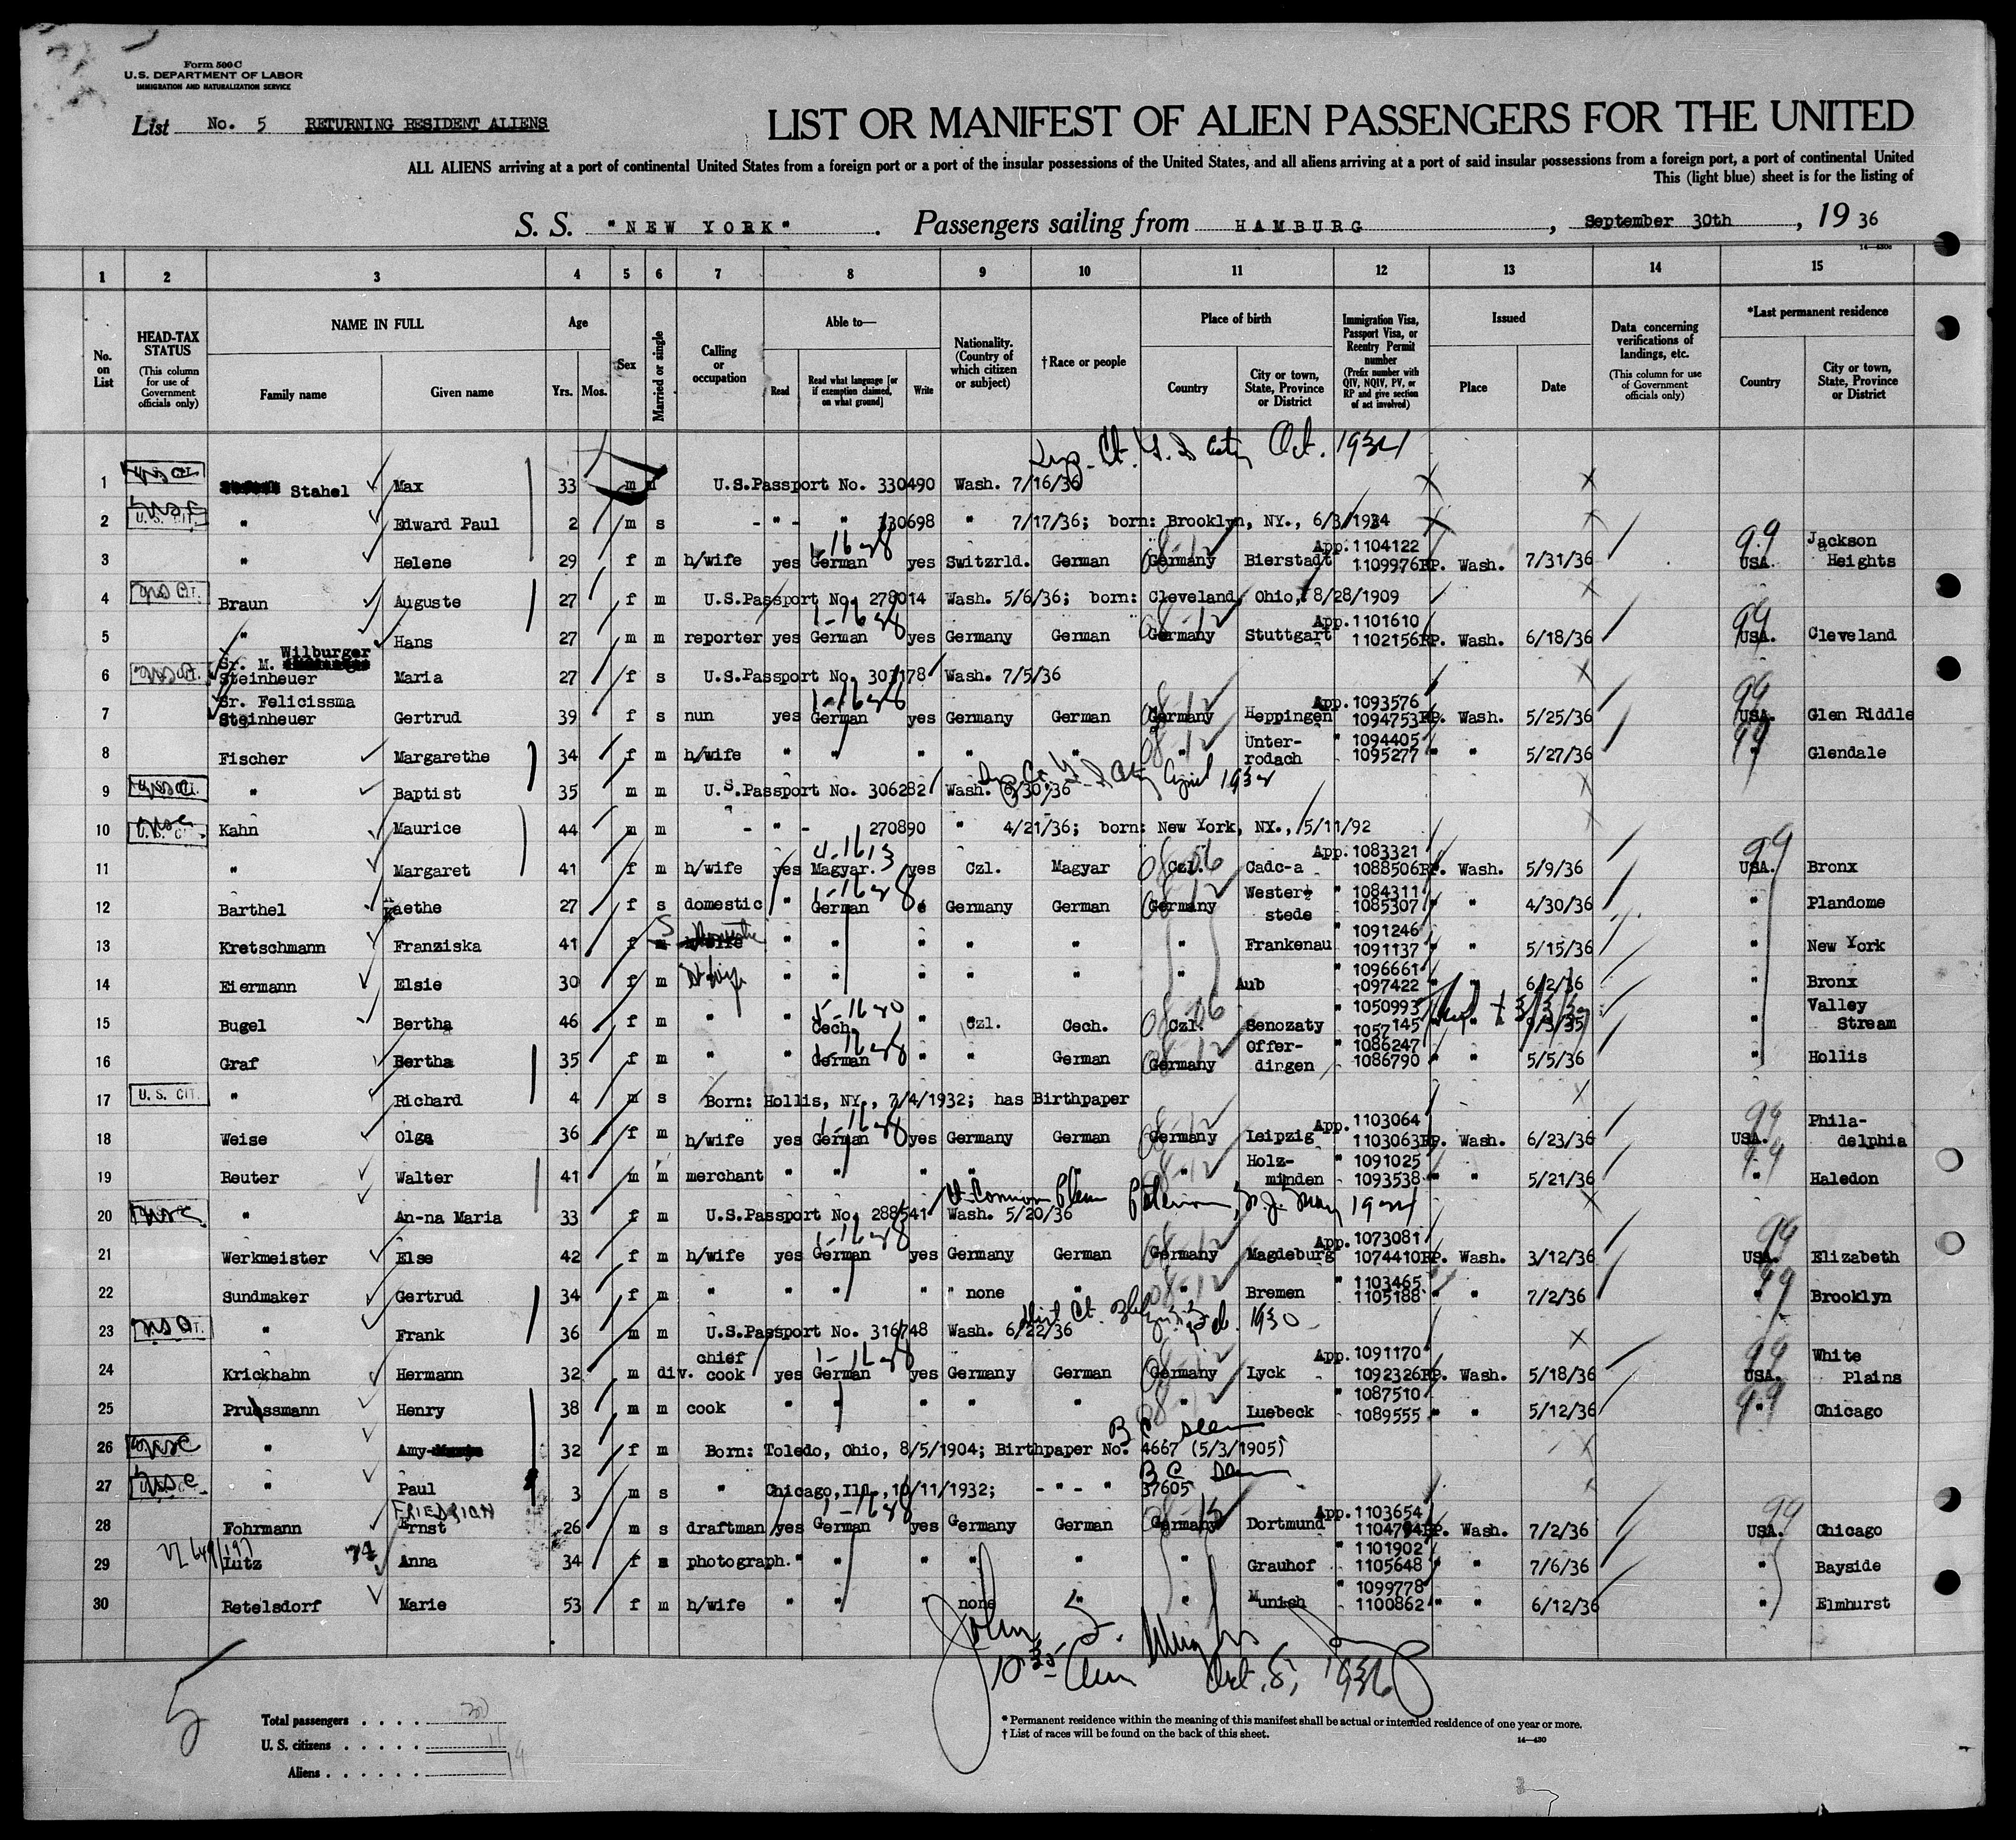 Form 500 C
U.S. DEPARTMENT OF LABOR
IMMIGRATION AND NATURALIZATION SERVICE
List No. 5 RETURNING RESIDENT ALIENS
LIST OR MANIFEST OF ALIEN PASSENGERS FOR THE UNITED
ALL ALIENS arriving at a port of continental United States from a foreign port or a port of the insular possessions of the United States, and all aliens arriving at a port of said insular possessions from a foreign port, a port of continental United
This (light blue) sheet is for the listing of
S. S. "NEW YORK". Passengers sailing from HAMBURG, September 30th, 19 36
1 2 3 4 5 6 7 8 9 10 11 12 13 14 15
No. on List
HEAD-TAX STATUS (This column for use of Government officials only)
NAME IN FULL Family name Given name
Age Yrs. Mos.
Sex
Married or single
Calling or occupation
Able to— Read Read what language [or if exemption claimed, on what ground] Write
Nationality. (Country of which citizen or subject)
† Race or people
Place of birth Country City or town, State, Province or District
Immigration Visa, Passport Visa, or Reentry Permit number (Prefix number with QIV, NQIV, PV, or RP and give section of act involved)
Issued Place Date
Data concerning verifications of landings, etc. (This column for use of Government officials only)
*Last permanent residence Country City or town, State, Province or District
Ct. Oct. 1934
1 Stahel Max 33 m m U.S.Passport No. 330490 Wash. 7/16/36
2 U.S. CIT. " Edward Paul 2 m s - " - " 330698 " 7/17/36; born: Brooklyn, NY., 6/3/1934
3 " Helene 29 f m h/wife yes German yes Switzrld. German Germany Bierstadt App. 1104122 1109976RP. Wash. 7/31/36 99 USA. Jackson Heights
4 Braun Auguste 27 f m U.S.Passport No. 278014 Wash. 5/6/36; born: Cleveland, Ohio, 8/28/1909
5 " Hans 27 m m reporter yes German yes Germany German Germany Stuttgart App. 1101610 1102156RP. Wash. 6/18/36 99 USA. Cleveland
6 Sr. M. Wilburger Steinheuer Maria 27 f s U.S.Passport No. 303178 Wash. 7/5/36
7 Sr. Felicissma Steinheuer Gertrud 39 f s nun yes German yes Germany German Germany Heppingen App. 1093576 1094753RP. Wash. 5/25/36 99 USA. Glen Riddle
8 Fischer Margarethe 34 f m h/wife " " " " " " Unter-rodach " 1094405 1095277 " " 5/27/36 99 " Glendale
9 " Baptist 35 m m U.S.Passport No. 306282 Wash. 6/30/36 April
10 U.S. CIT. Kahn Maurice 44 m m - " - 270890 " 4/21/36; born: New York, NY., 5/11/92
11 " Margaret 41 f m h/wife yes Magyar. yes Czl. Magyar Czl. Cadc-a App. 1083321 1088506RP. Wash. 5/9/36 99 USA. Bronx
12 Barthel Kaethe 27 f s domestic " German " Germany German Germany Wester-stede " 1084311 1085307 " " 4/30/36 " Plandome
13 Kretschmann Franziska 41 f S " " " " " " Frankenau " 1091246 1091137 " " 5/15/36 " New York
14 Eiermann Elsie 30 f m H-wife " " " " " " Aub " 1096661 1097422 " " 6/2/36 " Bronx
15 Bugel Bertha 46 f m " " Cech. " Czl. Cech. Czl. Senozaty " 1050993 1057145 " " 9/3/35 " Valley Stream
16 Graf Bertha 35 f m " " German " " German Germany Offer-dingen " 1086247 1086790 " " 5/5/36 " Hollis
17 U. S. CIT. " Richard 4 m s Born: Hollis, NY., 7/4/1932; has Birthpaper
18 Weise Olga 36 f m h/wife yes German yes Germany German Germany Leipzig App. 1103064 1103063RP. Wash. 6/23/36 99 USA. Phila-delphia
19 Reuter Walter 41 m m merchant " " " " " " Holz-minden " 1091025 1093538 " " 5/21/36 99 " Haledon
20 " An-na Maria 33 f m U.S.Passport No. 288541 Wash. 5/20/36 Ct. Common Pleas Paterson, N.J. May 1934
21 Werkmeister Else 42 f m h/wife yes German yes Germany German Germany Magdeburg App. 1073081 1074410RP. Wash. 3/12/36 99 USA. Elizabeth
22 Sundmaker Gertrud 34 f m " " " " none " " Bremen " 1103465 1105188 " " 7/2/36 99 " Brooklyn
23 " Frank 36 m m U.S.Passport No. 316748 Wash. 6/22/36 Dist Ct. 1930
24 Krickhahn Hermann 32 m div. chief cook yes German yes Germany German Germany Lyck App. 1091170 1092326RP. Wash. 5/18/36 99 USA. White Plains
25 Pruessmann Henry 38 m m cook " " " " " " Luebeck " 1087510 1089555 " " 5/12/36 99 " Chicago
26 " Amy 32 f m Born: Toledo, Ohio, 8/5/1904; Birthpaper No. 4667 (5/3/1905) BC seen
27 " Paul 3 m s " Chicago,Ill., 10/11/1932; - " - " 37605 BC seen
28 Fohrmann Ernst 26 m s draftman yes German yes Germany German Germany Dortmund App. 1103654 1104794RP. Wash. 7/2/36 99 USA. Chicago
29 Lutz Anna 34 f photograph. " " " " " " Grauhof " 1101902 1105648 " " 7/6/36 " Bayside
30 Retelsdorf Marie 53 f m h/wife " " " none " " Munich " 1099778 1100862 " " 6/12/36 " Elmhurst
John
10 35 am Oct. 8, 1936
5
Total passengers . . . . 30
U. S. citizens . . . . . 11
Aliens . . . . . . 19
* Permanent residence within the meaning of this manifest shall be actual or intended residence of one year or more.
† List of races will be found on the back of this sheet.
14—430